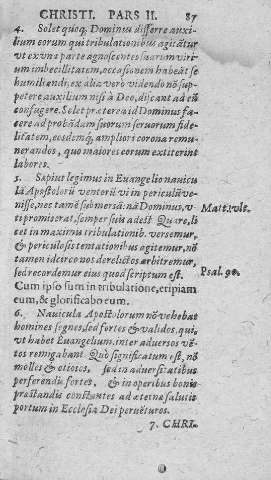 CHRISTI. PARS II. 87
4. Solet quoq; Dominus differre auxi-
lium eorum qui tribulationibus agitãtur
vt ex vna parte agnoscentes suarum viri-
um imbecillitatem, occasionem habeãt se
humiliandi, ex alia verò videndo nõ sup-
petere auxilium nisi à Deo, discant ad eũ
confugere. Solet præterea id Dominus fa-
cere ad probãdam suorum seruorum fide-
litatem, eosdemq́; ampliori corona remu-
nerandos, quo maiores eorum extiterint
labores.
5. Sæpius legimus in Euangelio nauicu
lã Apostolorũ ventorũ vi in periculũ ve-
nisse, nec tamẽ submersã: nã Dominus, v-
ti promiserat, semper suis adest. Quare, li
cet in maximis tribulationib. versemur,
& periculosis tentationibus agitemur, nõ
tamen idcirco nos derelictos arbitremur,
sed recordemur eius quod scriptum est.
Cum ipso sum in tribulatione, eripiam
eum, & glorificabo eum.
Matt. vlt.
Psal. 90.
6. Nauicula Apostolorum nõ vehebat
homines segnes, sed fortes & validos, qui,
vt habet Euangelium, inter aduersos vẽ-
tos remigabant. Quo significatum est, nõ
molles & otiosos, sed in aduersitatibus
perferendis fortes, & in operibus bonis
præstandis constantes ad æternæ salutis
portum in Ecclesia Dei peruẽturos.
7. CHRI-